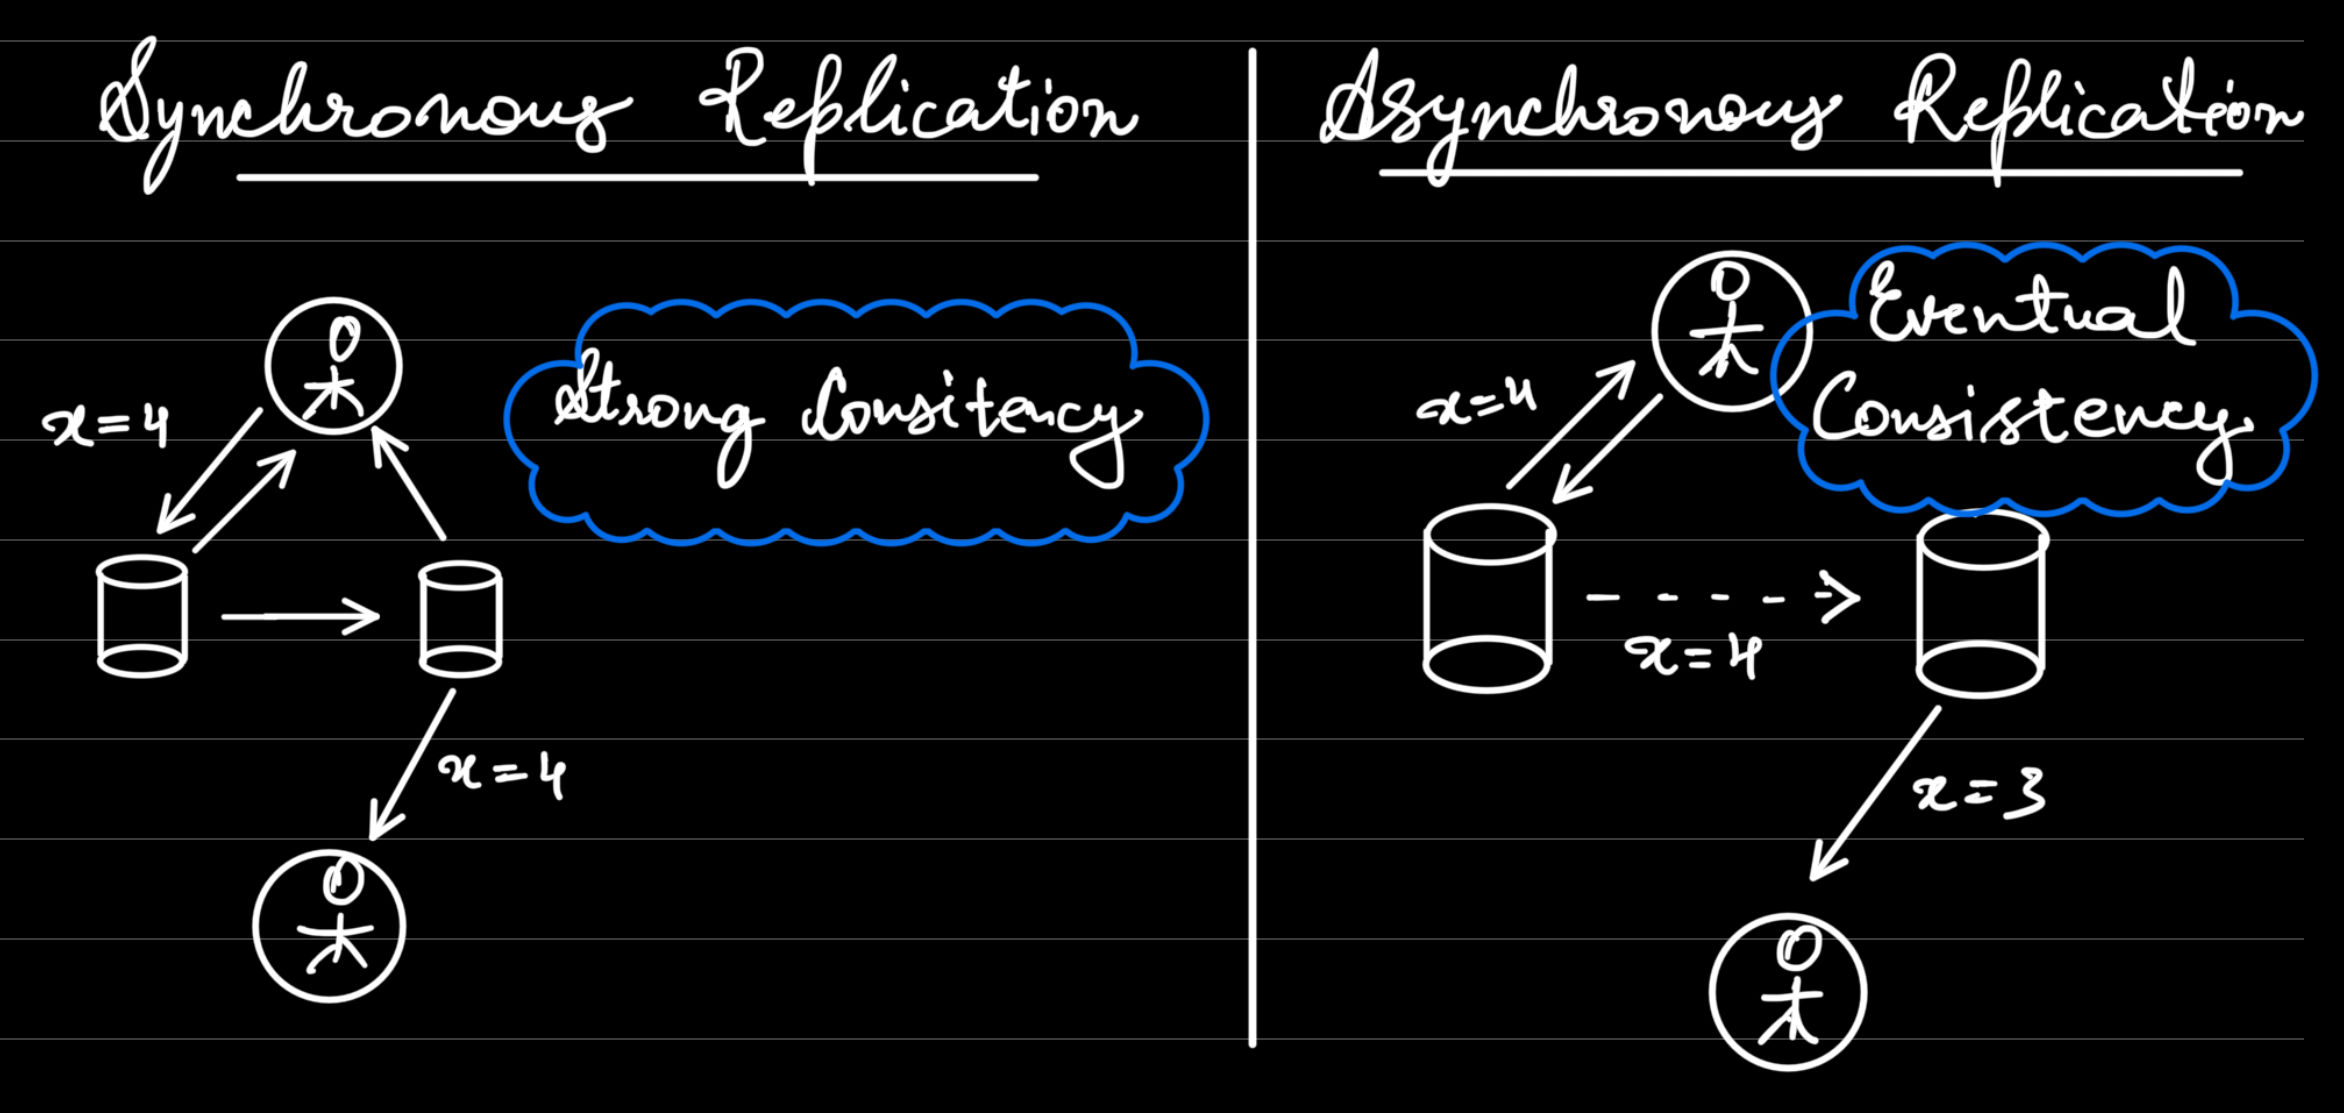 Synchronous Replication
x=4
Strong Consitency
x=4
Asynchronous Replication
Eventual
Consistency
x=4
x=4
x=3